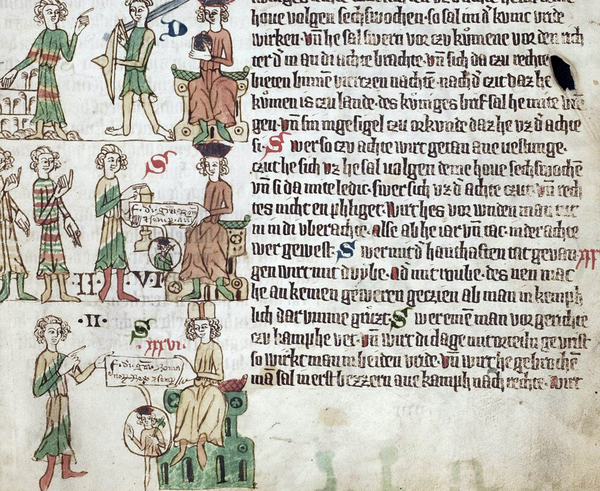 houe volgen sechswochen. so sal im d' kunic vrede
wirken. vn̄ he sal swern vor czu kumene vor den rich
ter d' in an di achte brachte. vn̄ sich da czu rechte
bieten binnen vierczen nachten. nach d' czit daz he
kumen is czu lande. des kuniges brif sal he mite
gen. vn̄ sin ingesigel czu orkunde daz he vz d' achte
si. Swer so czu achte wirt getan ane vestunge.
czuche sich vz he sal volgen deme houe sechswochen
vn̄ si da mite ledic. swer sich vz d' achte czut. vn̄ rech
tes nicht en phliget. wirt hes vor wunden man tut
in in di vberachte. alse ab he iar vn̄ tac in der achte
wer gewest. Swer mit d' hanthaften tat gevan
XXXV
gen wirt mit duybe. ad' mit roube. des nen mac
he an keinen geweren geczien ab man in kemph
lich dar vmme gruzt. Swer einen man vor gerichte
czu kamphe vet. vn̄ wirt di clage mit rechte gevrist
so wirkt man in beiden vrede. vn̄ wirt he gebrochen
man sal in erst bezzern ane kamph nach rechte. wirt
D
S
·II· VI
·II·
S
XXXVI